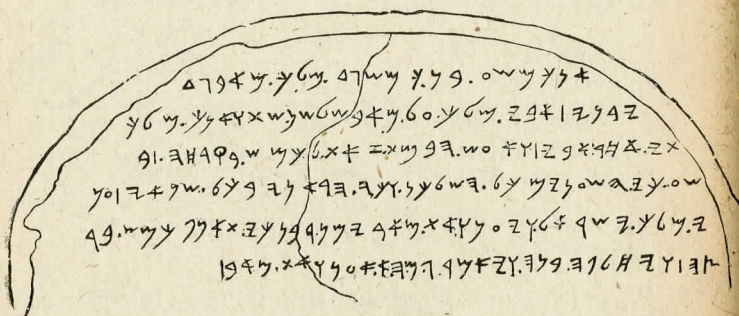 𐤀𐤍𐤊𐤌𐤔𐤏.𐤁𐤍.𐤊𐤌𐤔𐤂𐤃.𐤌𐤋𐤊.𐤌𐤀𐤁𐤂𐤃
𐤉𐤁𐤍𐤉|𐤀𐤁𐤉.𐤌𐤋𐤊.𐤏𐤋.𐤌𐤀𐤁 𐤔𐤋𐤔𐤍.𐤔𐤕 𐤅𐤀𐤍𐤊.𐤌𐤋𐤊
𐤕𐤉.𐤀𐤇𐤓.𐤀𐤁𐤉|𐤅𐤀𐤏𐤔.𐤄𐤁𐤌𐤕.𐤆𐤀𐤕.𐤋𐤊𐤌𐤔.𐤁𐤒𐤓𐤇𐤄.|𐤁
𐤔𐤏.𐤊𐤉.𐤄𐤔𐤏𐤍𐤉 𐤌𐤊𐤋.𐤄𐤔𐤋𐤊𐤍.𐤅𐤊𐤉.𐤄𐤓𐤀𐤍𐤉 𐤁𐤊𐤋.𐤔𐤍𐤀𐤉|𐤏𐤌
𐤉.𐤌𐤋𐤊.𐤉𐤔𐤓𐤀𐤋.𐤅𐤉𐤏𐤍𐤅.𐤀𐤕.𐤌𐤀𐤁 𐤉𐤌𐤍.𐤓𐤁𐤍.𐤊𐤉.𐤕𐤀𐤍𐤐 𐤊𐤌𐤔.𐤁𐤀𐤓
𐤑𐤄|𐤅𐤉𐤇𐤋𐤐𐤄.𐤁𐤍𐤄.𐤅𐤉𐤀𐤌𐤓.𐤂𐤌.𐤄𐤀.𐤀𐤏𐤍𐤅.𐤀𐤕.𐤌𐤀𐤁|